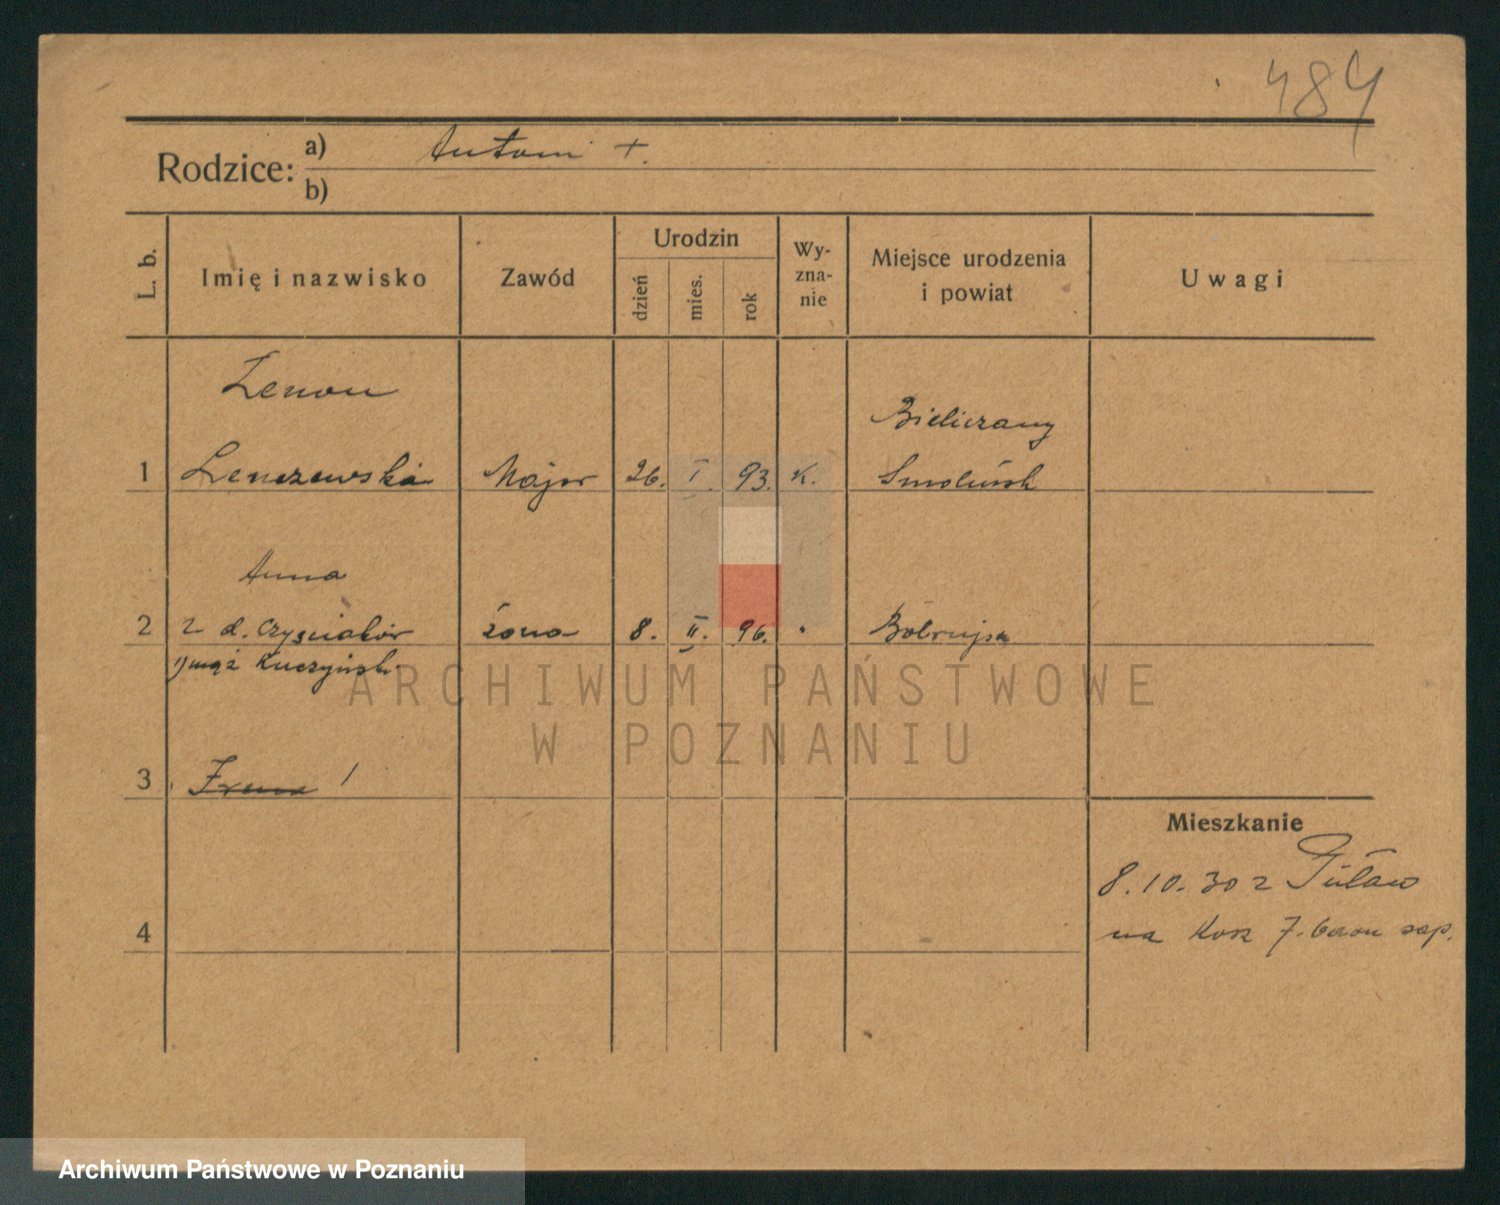 484
Rodzice: a) Antoni +.
b)
L. b.
Imię i nazwisko
Zawód
Urodzin
dzień
mies.
rok
Wy-
zna-
nie
Miejsce urodzenia
i powiat
Uwagi
Zenon
Bieliczany
1 Lenczewski Major 26. I. 93. K. Smoleńsk
Anna
2 z d. Czyściaków żona 8. II. 96. Bobrujsk
1) mąż Kuczyński
3 Irena
Mieszkanie
8.10.30 z Puław
4
na Kosz 7. baon sap.
ARCHIWUM PAŃSTWOWE
W POZNANIU
Archiwum Państwowe w Poznaniu